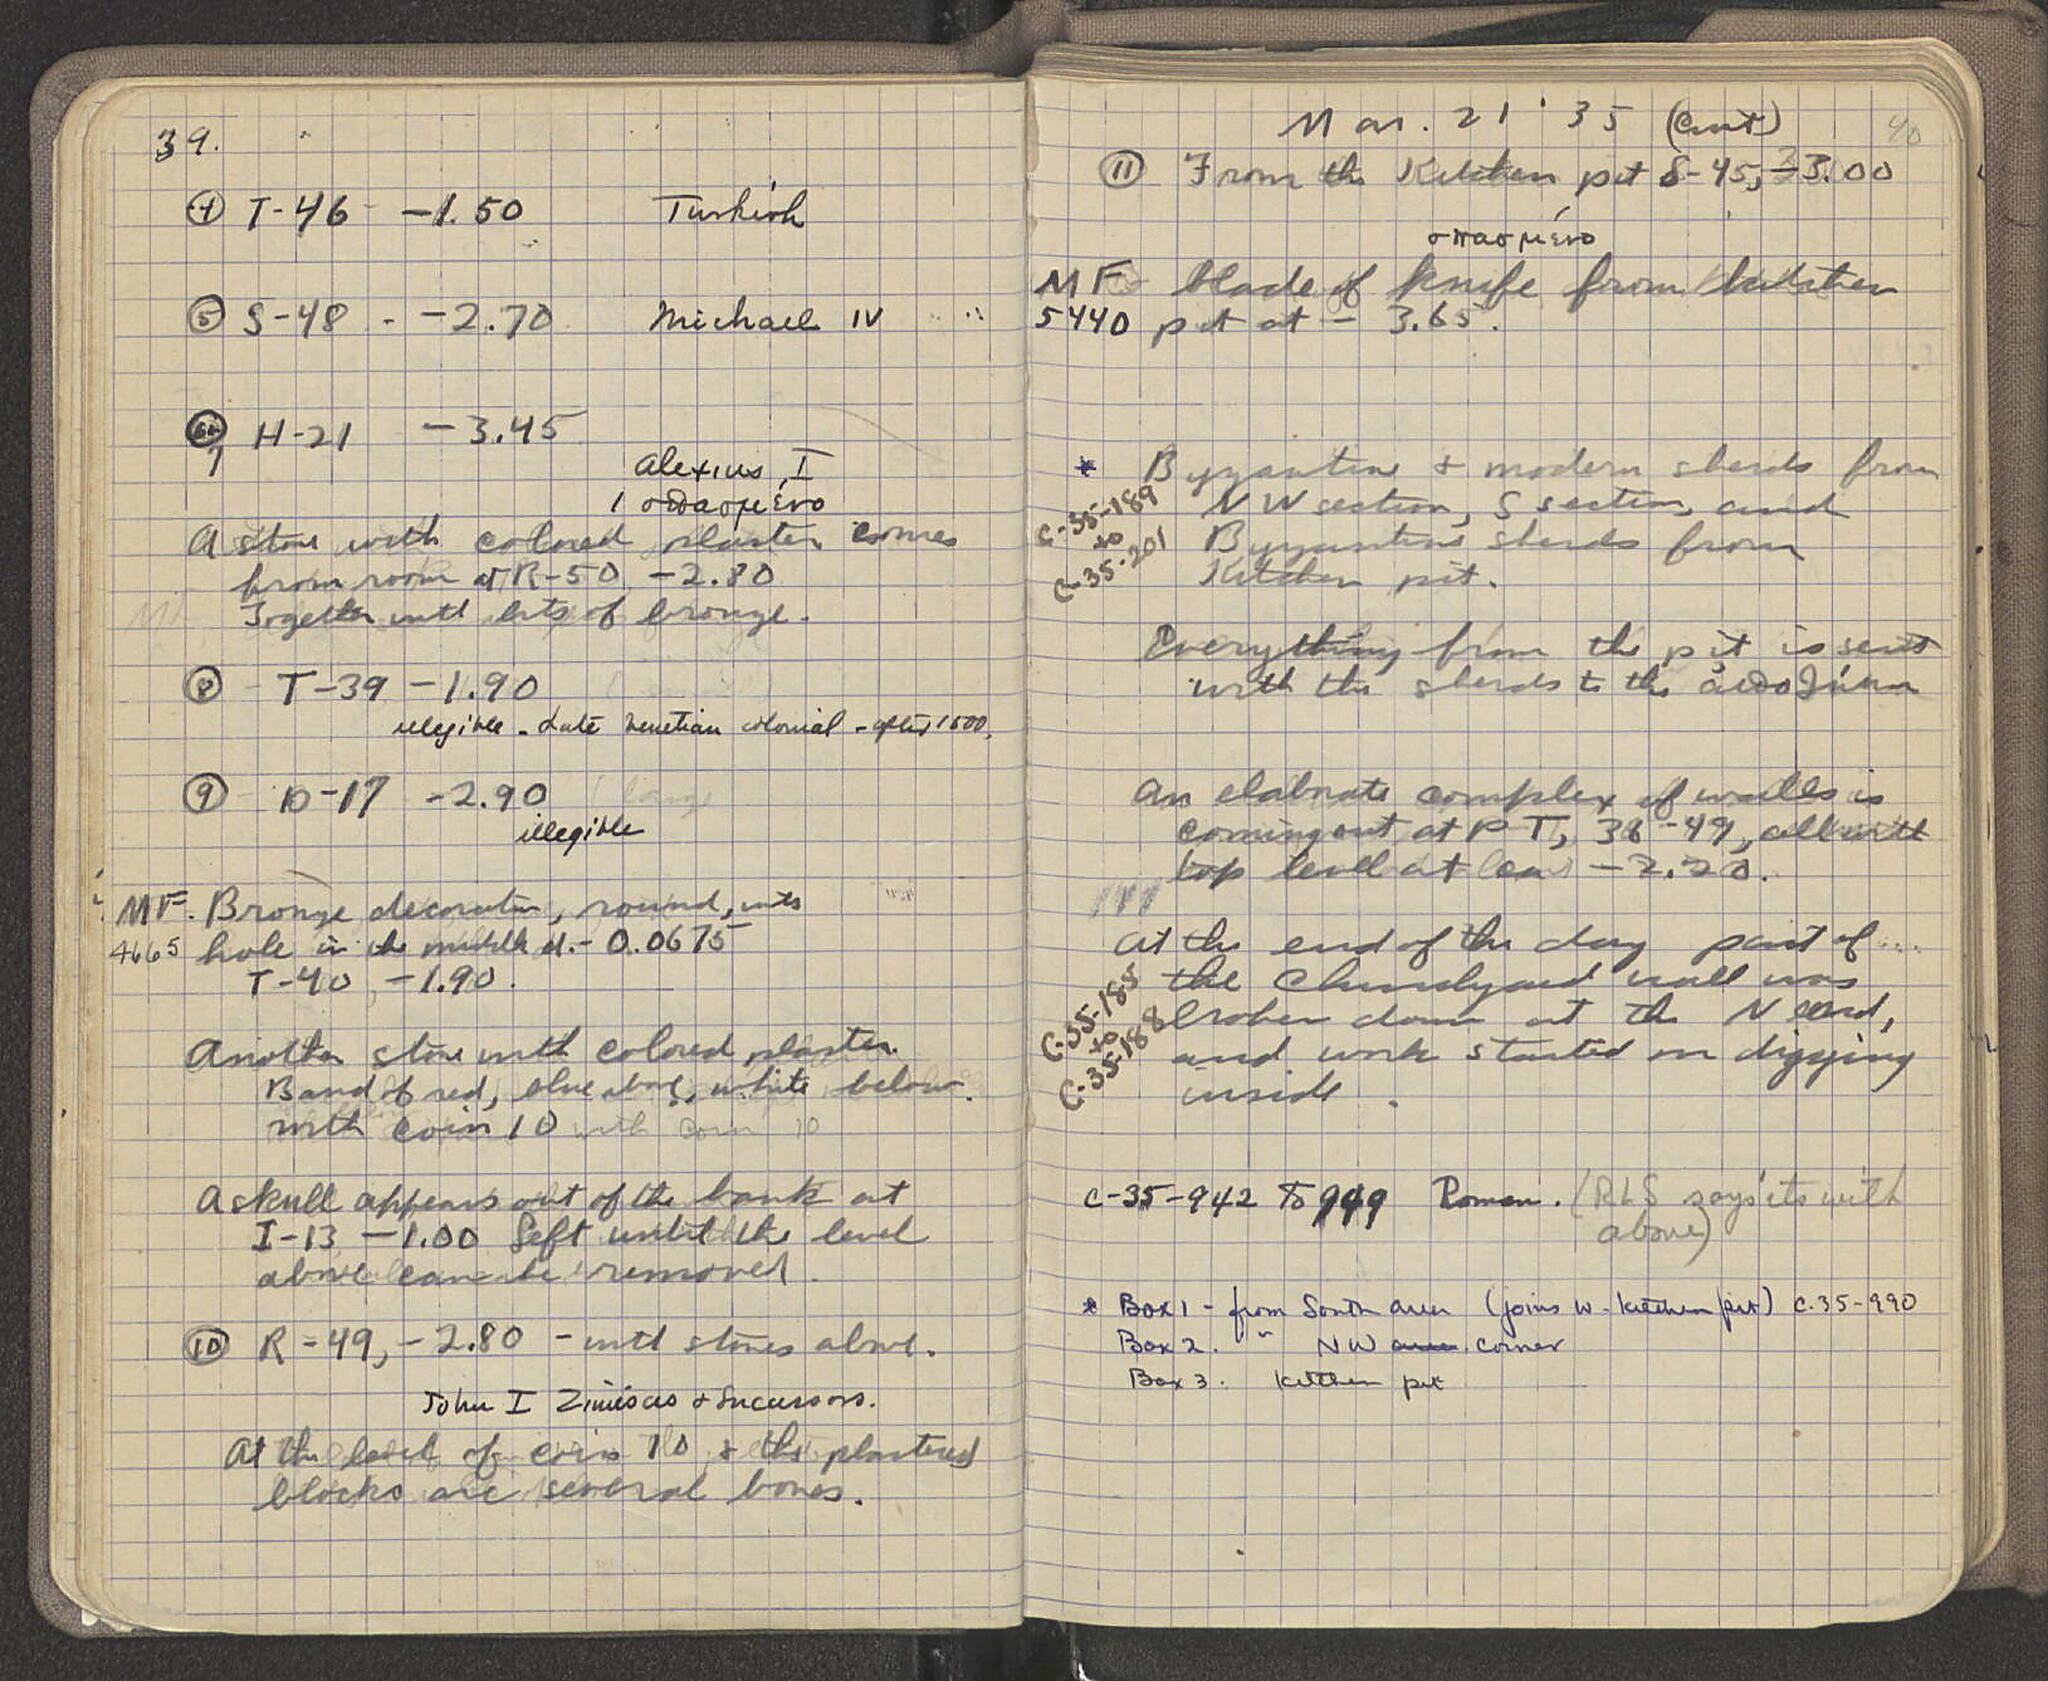 39.
④ T-46 -1.50 Turkish
⑤ S-48 - -2.70 Michael IV
H-21 -3.45
7
Alexius I
1 σπασμένο
A stone with colored plaster comes
from room at R-50 -2.80
Together with bits of bronze.
⑧ T-39 -1.90
illegible - Late Venetian colonial - after 1500.
⑨ D-17 -2.90 1 large
illegible
MF. Bronze decoration, round, with
4665 hole in the middle d. - 0.0675
T-40, -1.90.
Another stone with colored plaster.
Band of red, blue above, white below.
with coin 10 with coin 10
A skull appears out of the bank at
I-13 -1.00 Left until the level
above can be removed.
⑩ R-49, -2.80 - with stones above.
John I Zimisces & Successors.
At the level of coin 10 & the plastered
blocks are several bones.
Mar. 21 '35 (Cont) 40
⑪ From the Kitchen pit S-45, -3.00
σπασμένο
MF blade of knife from kitchen
5440 pit at - 3.65.
* Byzantine & modern sherds from
C-35-189 NW section, S section, and
to Byzantine sherds from
C-35-201 Kitchen pit.
Everything from the pit is sent
with the sherds to the
An elaborate complex of walls is
coming out at P T, 36-49, all with
top level at -2.20.
At the end of the day part of
C-35-185 the Churchyard wall was
to broken down at the N end,
C-35-188 and work started on digging
inside.
C-35-942 to 949 Roman. (RLS says its with
above)
* Box 1 - from South area (joins w. kitchen pit) C.35-990
Box 2. " NW area corner
Box 3. kitchen pit